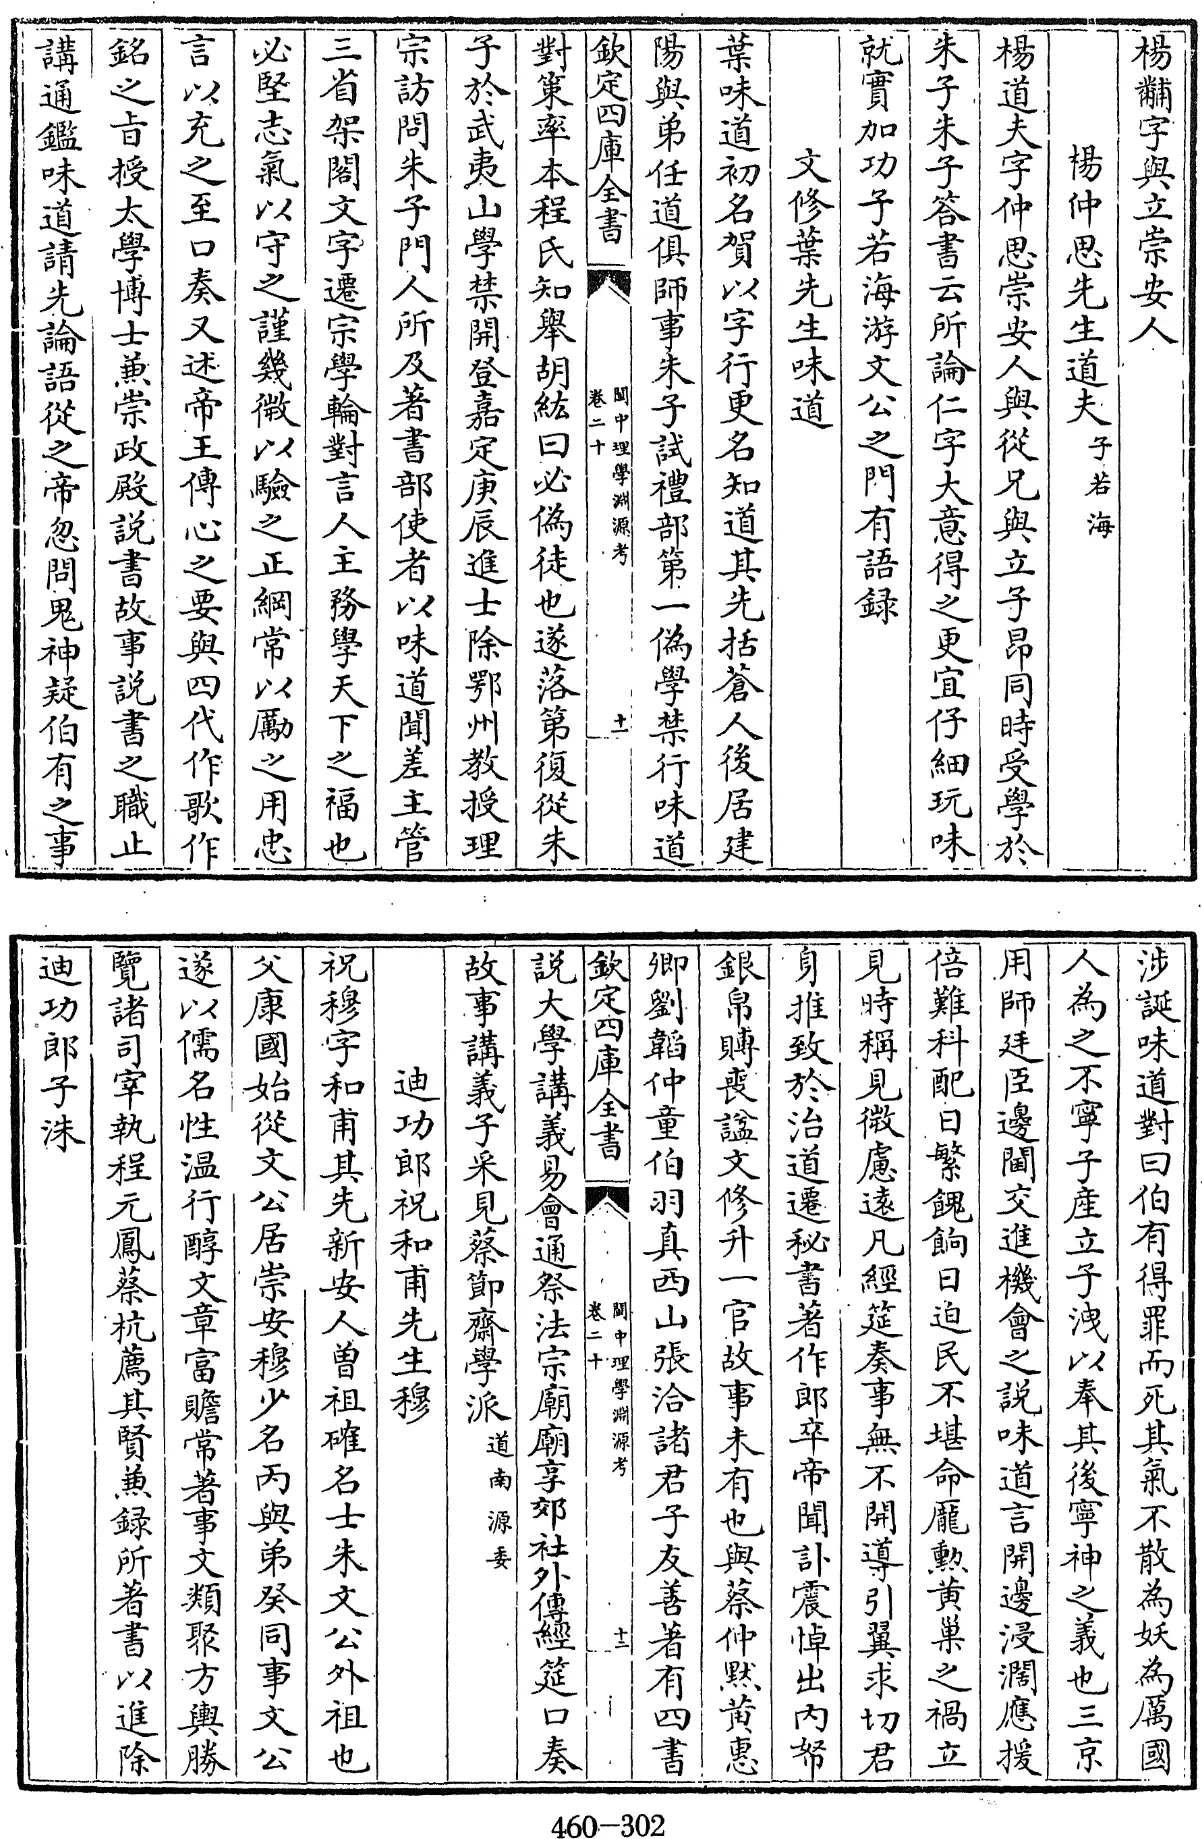 楊黼字與立崇安人
楊仲思先生道夫子若海
楊道夫字仲思崇安人與從兄與立子昂同時受學於
朱子朱子答書云所論仁字大意得之更宜仔細玩味
就實加功子若海游文公之門有語録
文修葉先生味道
葉味道初名賀以字行更名知道其先括蒼人後居建
陽與弟任道俱師事朱子試禮部第一偽學禁行味道
欽定四庫全書
閩中理學淵源考
卷二十
十一
對策率本程氏知舉胡紘曰必偽徒也遂落第復從朱
子於武夷山學禁開登嘉定庚辰進士除鄂州教授理
宗訪問朱子門人所及著書部使者以味道聞差主管
三省架閣文字遷宗學輪對言人主務學天下之福也
必堅志氣以守之謹幾微以驗之正綱常以勵之用忠
言以充之至口奏又述帝王傳心之要與四代作歌作
銘之㫖授太學博士兼崇政殿説書故事説書之職止
講通鑑味道請先論語從之帝忽問鬼神疑伯有之事
涉誕味道對曰伯有得罪而死其氣不散為妖為厲國
人為之不寧子産立子洩以奉其後寧神之義也三京
用師廷臣邊閫交進機會之説味道言開邊浸濶應援
倍難科配日繁餽餉日迫民不堪命龎勲黄巢之禍立
見時稱見微慮遠凡經筵奏事無不開導引翼求切君
身推致於治道遷秘書著作郎卒帝聞訃震悼出内帑
銀帛賻喪諡文修升一官故事未有也與蔡仲黙黄惠
卿劉韜仲童伯羽真西山張洽諸君子友善著有四書
欽定四庫全書
閩中理學淵源考
卷二十
十二
説大學講義易會通祭法宗廟廟享郊社外傳經筵口奏
故事講義子采見蔡節齋學派道南源委
迪功郎祝和甫先生穆
祝穆字和甫其先新安人曽祖確名士朱文公外祖也
父康國始從文公居崇安穆少名丙與弟癸同事文公
遂以儒名性温行醇文章富贍常著事文類聚方輿勝
覽諸司宰執程元鳳蔡杭薦其賢兼録所著書以進除
迪功郎子洙
460-302